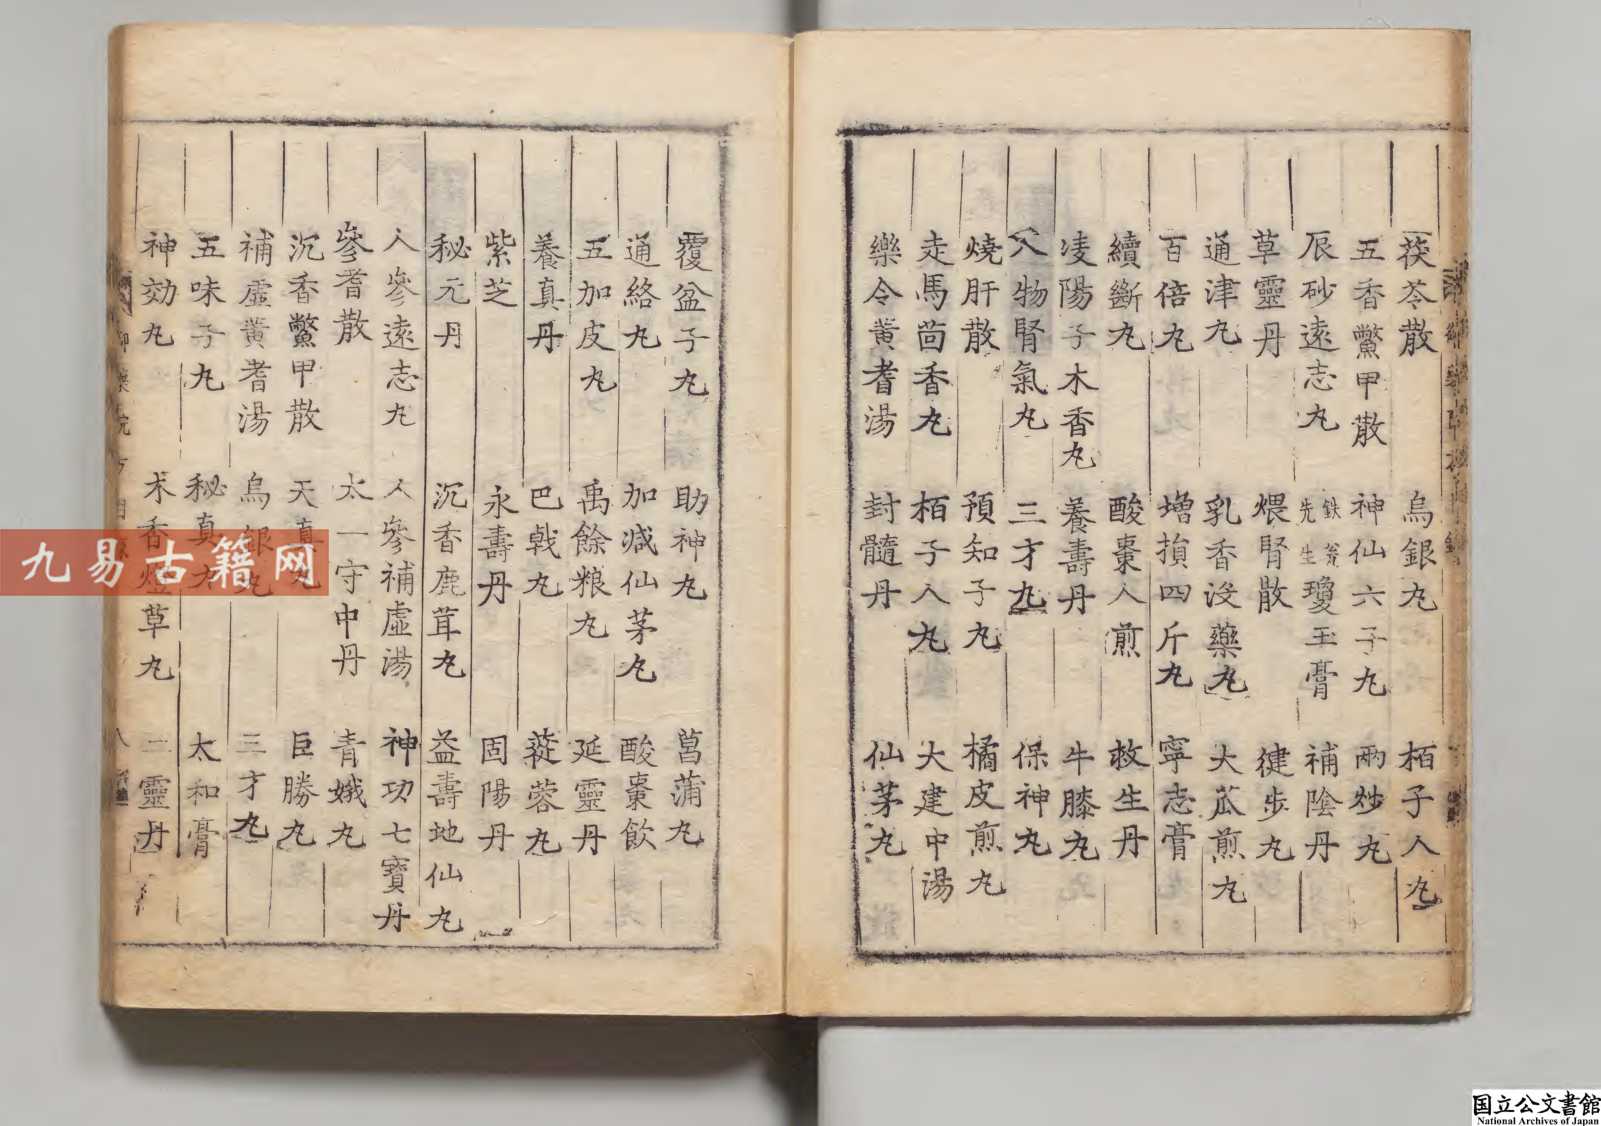 茯苓散 烏銀丸 栢子人丸
五香鱉甲散 神仙六子丸 兩炒丸
辰砂遠志丸 鉄瓮先生瓊玉膏 補陰丹
草靈丹 煨腎散 健步丸
通津丸 乳香没藥丸 大瓜煎丸
百倍丸 增損四斤丸 寧志膏
續斷丸 酸棗人煎 救生丹
凌陽子木香丸 養壽丹 牛膝丸
八物腎氣丸 三才丸 保神丸
燒肝散 預知子丸 橘皮煎丸
走馬茴香丸 栢子人丸 大建中湯
樂令黄耆湯 封髓丹 仙茅丸
覆盆子丸 助神丸 菖蒲丸
通絡丸 加减仙茅丸 酸棗飲
五加皮丸 禹餘粮丸 延靈丹
養真丹 巴戟丸 蓯蓉丸
紫芝 永壽丹 固陽丹
秘元丹 沉香鹿茸丸 益壽地仙丸
人參遠志丸 人參補虛湯 神功七寳丹
參耆散 太一守中丹 青娥丸
沉香鱉甲散 天真丸 巨勝丸
補虛黄耆湯 烏銀丸 三才丸
五味子丸 秘真丸 太和膏
神効丸 木香煨草丸 二靈丹
御藥院方目
八
九易古籍网
国立公文書館
National Archives of Japan